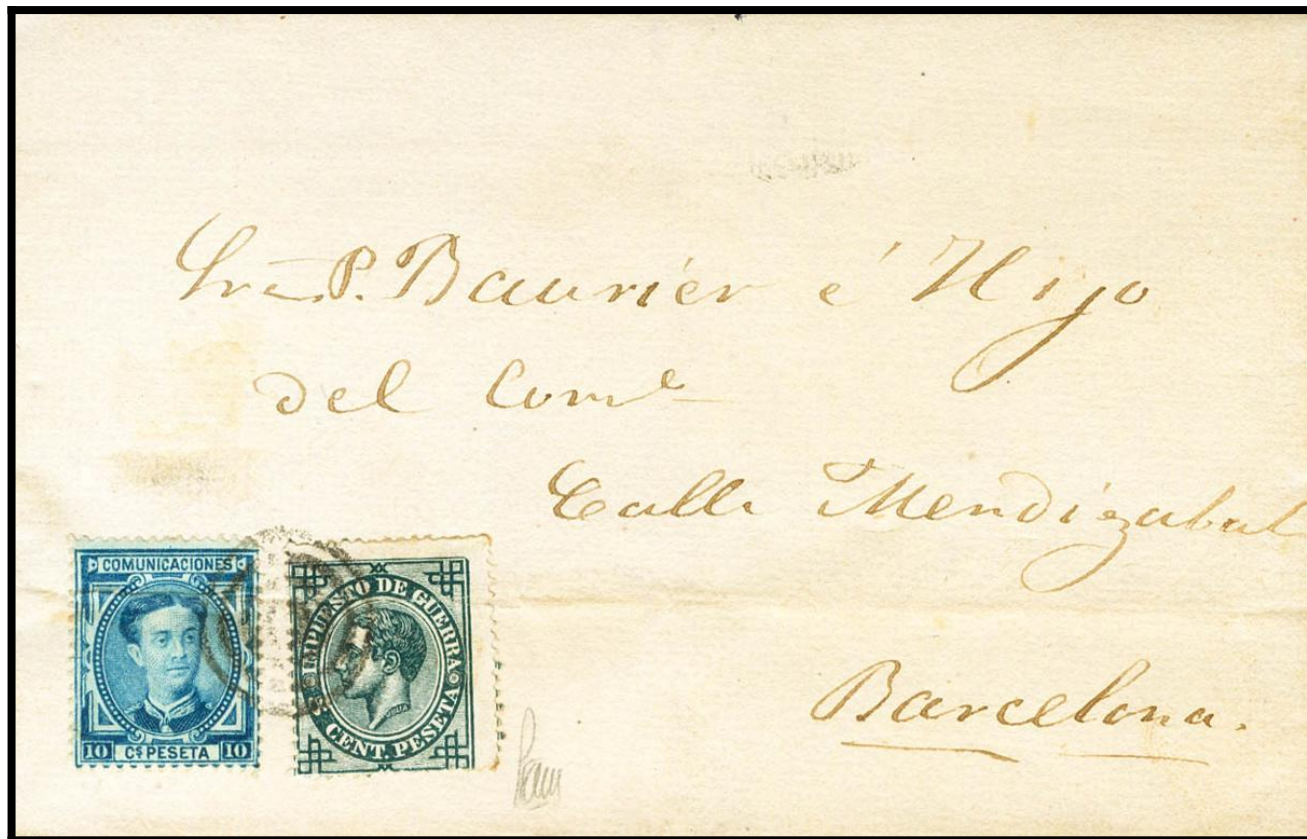 Sres P. Baurier é Hijo
del Come
Calle Mendizabal
Barcelona.
COMUNICACIONES
10 Cs PESETA 10
IMPUESTO DE GUERRA
5 CENT. PESETA